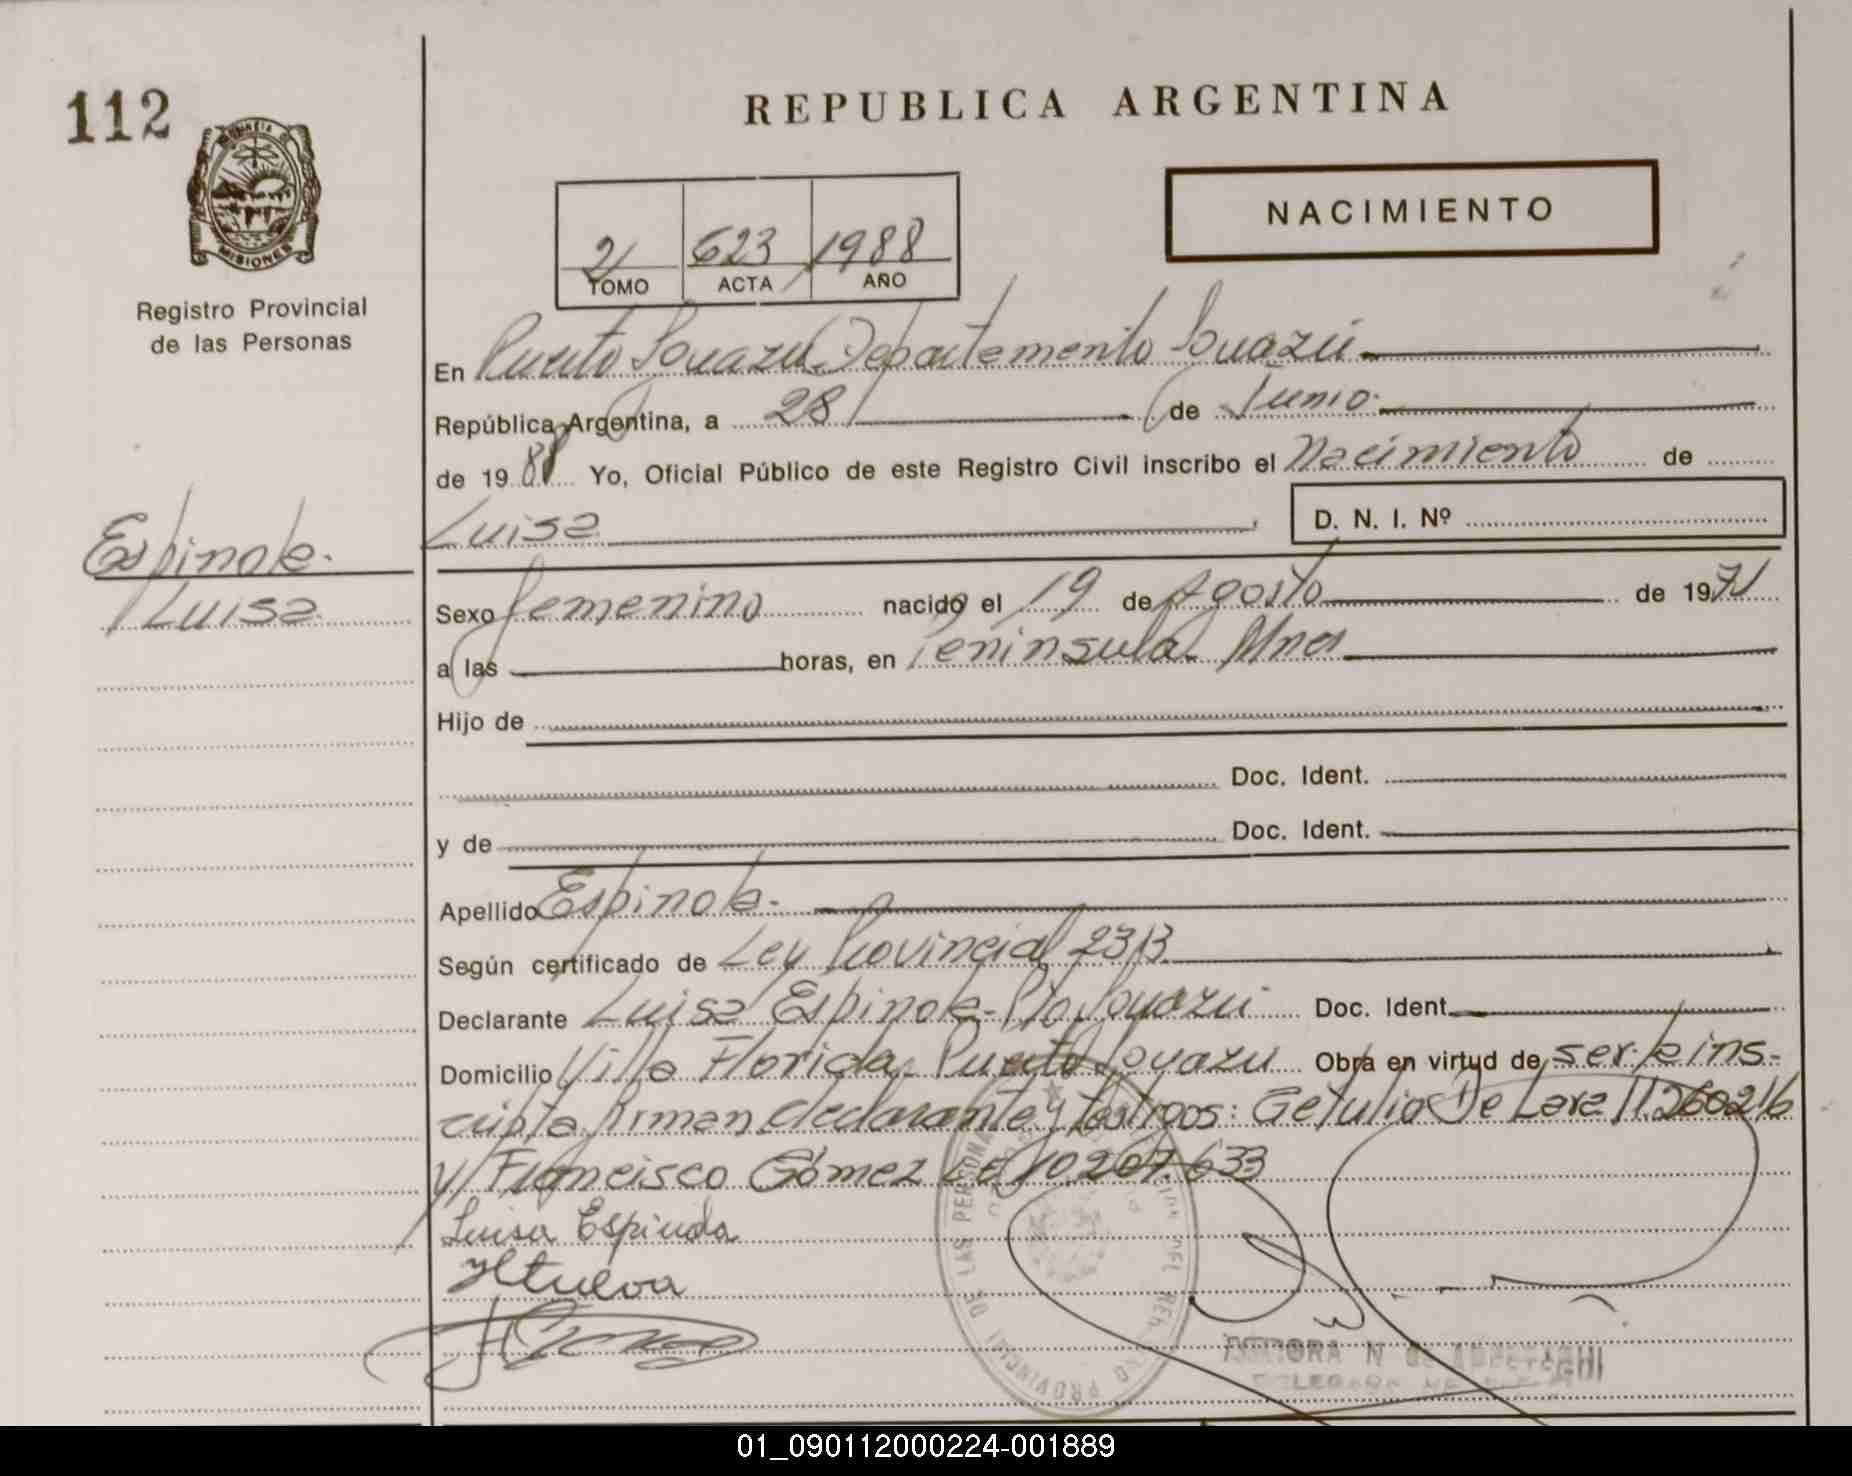 112
REPUBLICA ARGENTINA
PROVINCIA DE
MISIONES
Registro Provincial
de las Personas
2 623 1988
TOMO ACTA AÑO
NACIMIENTO
En Puerto Iguazú Departamento Iguazú
República Argentina, a 28 de Junio
de 19 88 Yo, Oficial Público de este Registro Civil inscribo el Nacimiento de
Luisa D. N. I. Nº
Espinola
Luisa
Sexo femenino nacido el 19 de Agosto de 1971
a las horas, en Península Mnes
Hijo de
Doc. Ident.
y de Doc. Ident.
Apellido Espinola
Según certificado de Ley Provincial 2313
Declarante Luisa Espinola Pto Iguazú Doc. Ident.
Domicilio Villa Florida Puerto Iguazú Obra en virtud de ser ins-
cripta firman declarante y testigos: Getulio De Lara 11.260216
y Francisco Gómez LE 10.207.633
Luisa Espinola
01_090112000224-001889